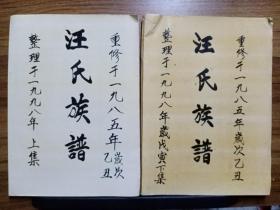 重修于一九八五年歲次乙丑
汪氏族譜
整理于一九九八年 上集
重修于一九八五年歲次乙丑
汪氏族譜
整理于一九九八年歲戊寅下集